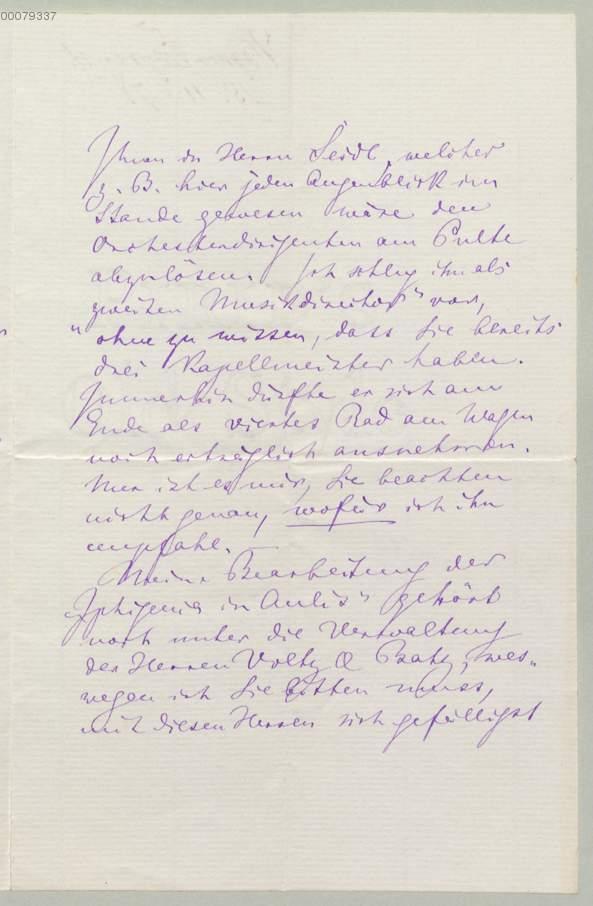 00079337
Ihnen in Herrn Seidl, welcher
z. B. hier jeden Augenblick im
Stande gewesen wäre den
Orchesterdirigenten am Pulte
abzulösen. Ich schlug ihn als
zweiten Musikdirector" vor,
"ohne zu wissen, dass Sie bereits
drei Kapellmeister haben.
Immerhin dürfte er sich am
Ende als viertes Rad am Wagen
noch erträglich ausnehmen.
Nur ist es mir, Sie beachten
nicht genau, wofür ich ihn
empfahl. —
Meine Bearbeitung der
Iphigenia in Aulis" gehört
noch unter die Verwaltung
der Herren Voltz & Batz, wes-
wegen ich Sie bitten muss,
mit diesen Herren sich gefälligst